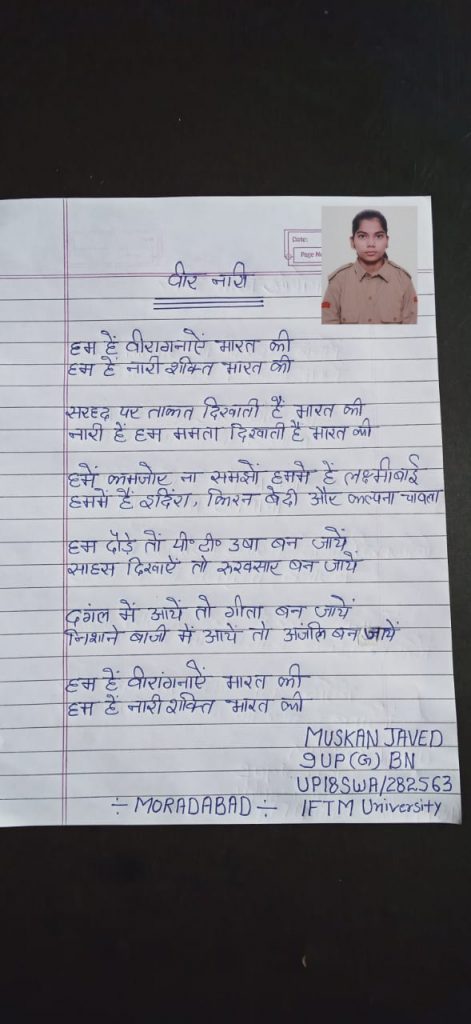 Date:
Page No
वीर नारी
हम हैं वीरांगनाऐं भारत की
हम हैं नारी शक्ति भारत की
सरहद पर ताकत दिखाती हैं भारत की
नारी हैं हम ममता दिखाती है भारत की
हमें कमजोर ना समझों हममे हैं लक्ष्मीबाई
हममें हैं इंदिरा, किरन बेदी और कल्पना चावला
हम दौड़े तों पी॰ टी॰ उषा बन जायें
साहस दिखाऐं तो रुखसार बन जायें
दंगल में आयें तो गीता बन जायें
निशाने बाजी में आयें तो अंजलि बन जायें
हम हैं वीरांगनाऐं भारत की
हम हैं नारी शक्ति भारत की
MUSKAN JAVED
9UP(G) BN
UP18SWA/282563
÷ MORADABAD ÷ IFTM University